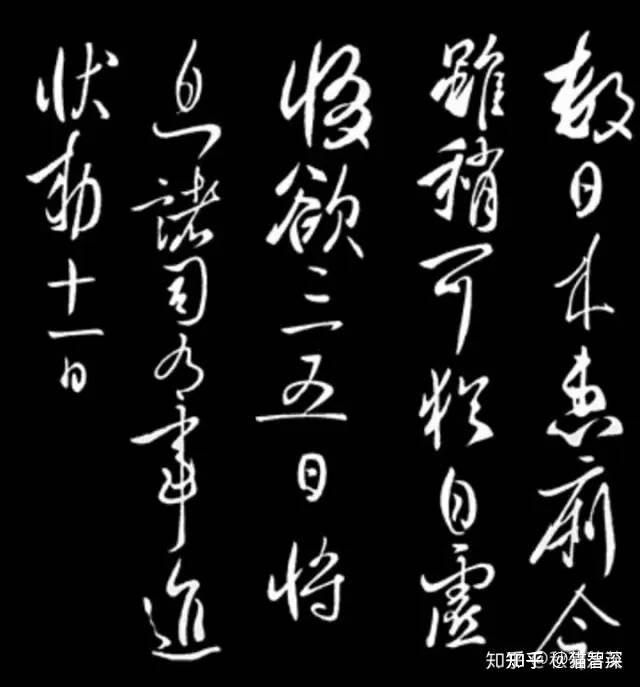 數日來患痢今
雖稍可猶自虛
惙欲三五日將
息諸司有事進
狀勅十一日
知乎 @猫智深